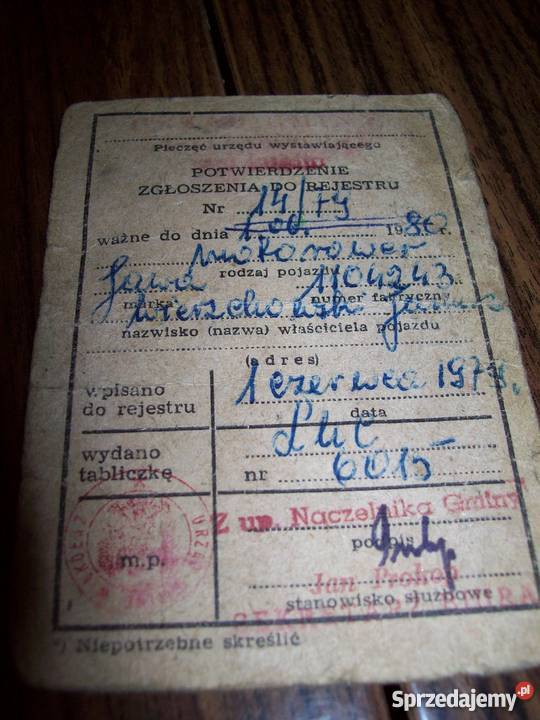 Pieczęć urzędu wystawiającego
POTWIERDZENIE
ZGŁOSZENIA DO REJESTRU
Nr 14/79
ważne do dnia 1980r.
motorower
rodzaj pojazdu
Jawa 1104243
marka* numer fabryczn
Janusz
nazwisko (nazwa) właściciela pojazdu
(adres)
wpisano
do rejestru
1 czerwca 1979r.
data
wydano
tabliczkę
LHC
nr 6015
Z up. Naczelnika Gminy
podpis
m.p.
Jan Prokop
stanowisko służbowe
*) Niepotrzebne skreślić
Sprzedajemy.pl